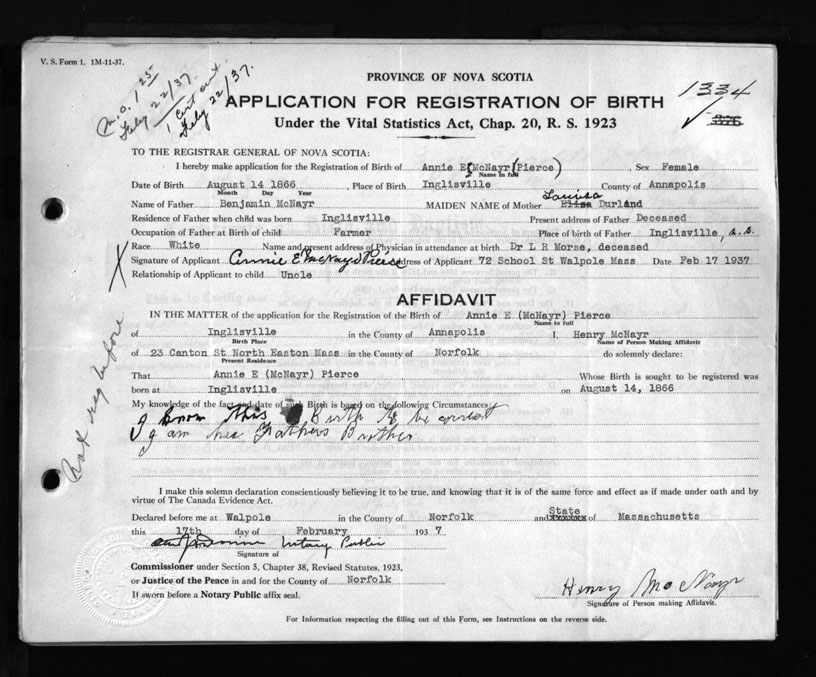 V. S. Form 1. 1M-11-37.
M.O. 1 25
Feby 22/37.
1 Cert out
Feby 22/37.
PROVINCE OF NOVA SCOTIA
1334
APPLICATION FOR REGISTRATION OF BIRTH
Under the Vital Statistics Act, Chap. 20, R. S. 1923
TO THE REGISTRAR GENERAL OF NOVA SCOTIA:
I hereby make application for the Registration of Birth of Annie E (McNayr) (Pierce), Sex Female
Name in full
Date of Birth August 14 1866, Place of Birth Inglisville County of Annapolis
Month Day Year
Louisa
Name of Father Benjamin McNayr MAIDEN NAME of Mother Eliza Durland
Residence of Father when child was born Inglisville Present address of Father Deceased
Occupation of Father at Birth of child Farmer Place of Birth of Father Inglisville, N.S.
Race White Name and present address of Physician in attendance at birth Dr L R Morse, deceased
Signature of Applicant Annie E McNayr Pierce Address of Applicant 72 School St Walpole Mass Date Feb 17 1937
Relationship of Applicant to child Uncle
Not reg before
AFFIDAVIT
IN THE MATTER of the application for the Registration of the Birth of Annie E (McNayr) Pierce
Name in full
of Inglisville in the County of Annapolis I, Henry McNayr
Birth Place Name of Person Making Affidavit
of 23 Canton St North Easton Mass in the County of Norfolk do solemnly declare:
Present Residence
That Annie E (McNayr) Pierce Whose Birth is sought to be registered was
born at Inglisville on August 14, 1866
My knowledge of the fact and date of such Birth is based on the following Circumstances:
I know this Birth to be correct
I am her Fathers Brother
I make this solemn declaration conscientiously believing it to be true, and knowing that it is of the same force and effect as if made under oath and by
virtue of The Canada Evidence Act.
State
Declared before me at Walpole in the County of Norfolk and xxxxxxx of Massachusetts
this 17th day of February 1937
Notary Public
Signature of
Commissioner under Section 5, Chapter 38, Revised Statutes, 1923,
or Justice of the Peace in and for the County of Norfolk
If sworn before a Notary Public affix seal.
Henry McNayr
Signature of Person making Affidavit.
For Information respecting the filling out of this Form, see Instructions on the reverse side.